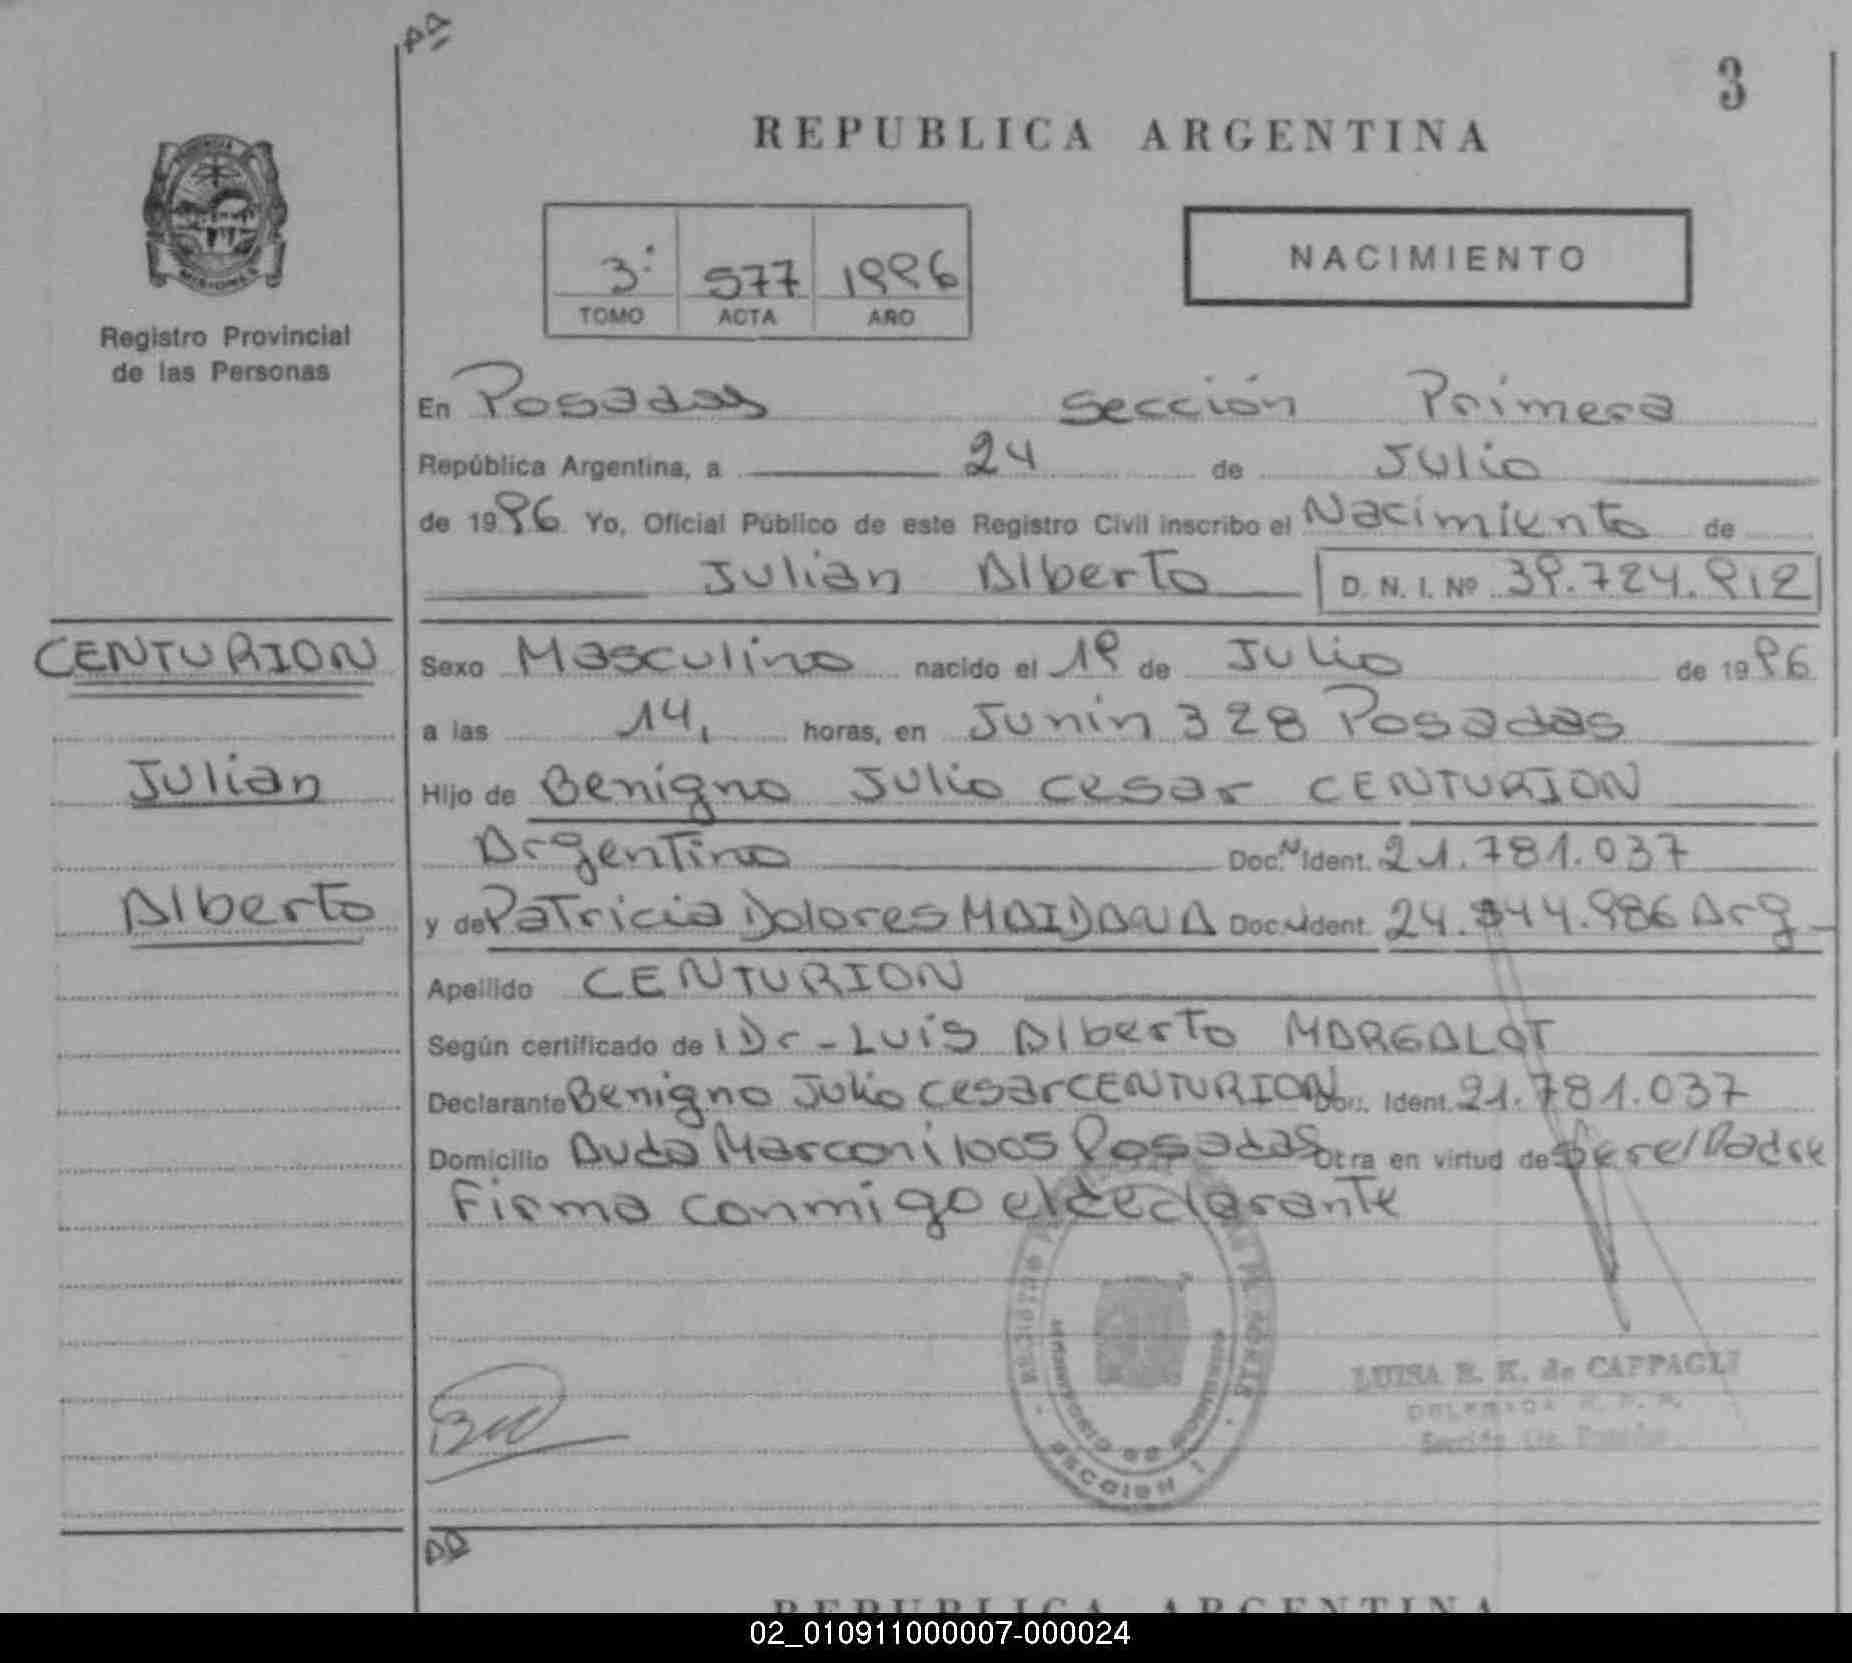 3
REPUBLICA ARGENTINA
NACIMIENTO
3º 577 1996
TOMO ACTA AÑO
Registro Provincial
de las Personas
En Posadas sección Primera
República Argentina, a 24 de Julio
de 1996 Yo, Oficial Público de este Registro Civil inscribo el Nacimiento de
Julian Alberto D. N. I. Nº 39.724.912
CENTURION
Julian
Alberto
Sexo Masculino nacido el 19 de Julio de 1996
a las 14, horas, en Junín 328 Posadas
Hijo de Benigno Julio Cesar CENTURION
Argentino Doc. N Ident. 21.781.037
y de Patricia Dolores MAIDANA Doc. N Ident. 24.344.986 Arg.
Apellido CENTURION
Según certificado de Dr - Luis Alberto MARGALOT
Declarante Benigno Julio Cesar CENTURION Doc. Ident. 21.781.037
Domicilio Avda Marconi 1005 Posadas Otra en virtud de Ser el Padre
Firma conmigo el declarante
SECCION 1
LUISA E. K. de CAPPAGLI
DELEGADA R. P. P.
REPUBLICA ARGENTINA
02_010911000007-000024